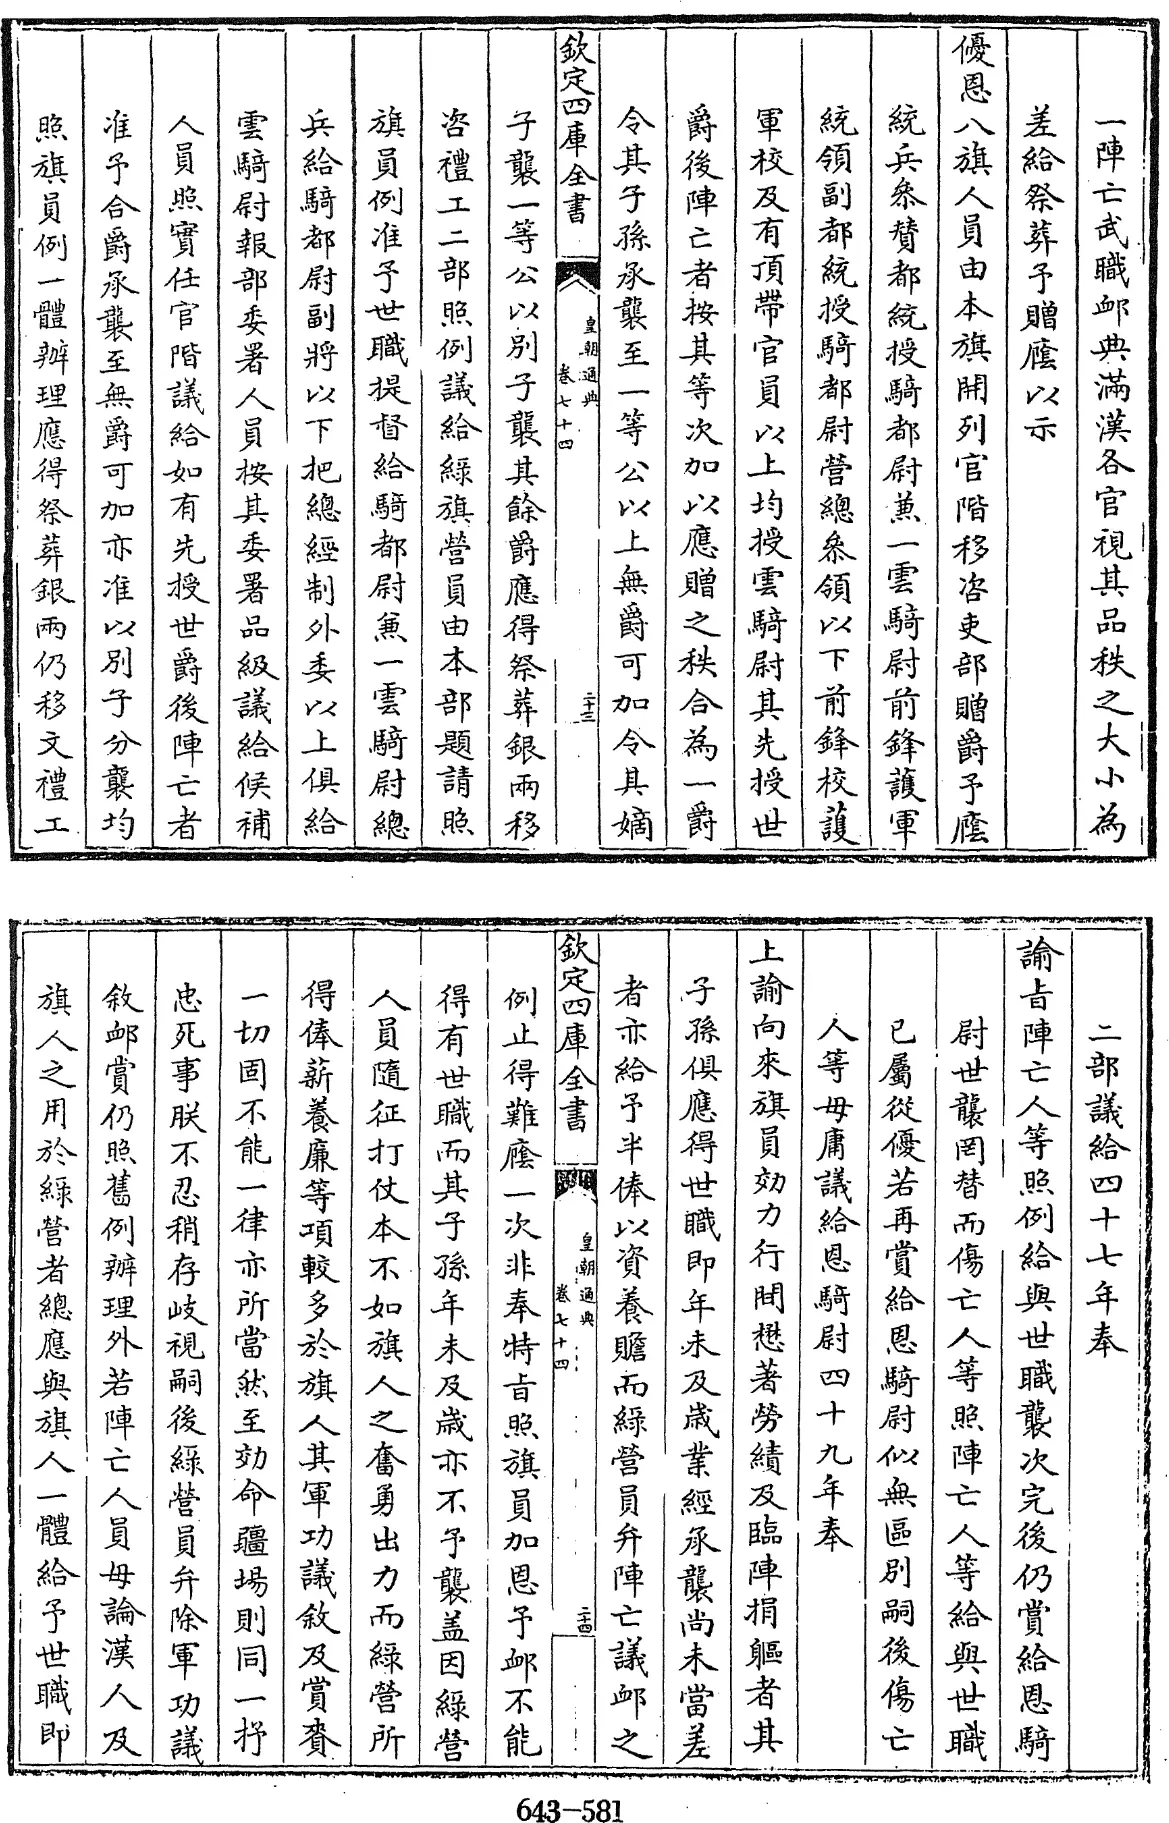 一陣亡武職卹典滿漢各官視其品秩之大小為
差給祭葬予贈廕以示
優恩八旗人員由本旗開列官階移咨吏部贈爵予廕
統兵叅贊都統授騎都尉兼一雲騎尉前鋒護軍
統領副都統授騎都尉營總叅領以下前鋒校護
軍校及有頂帶官員以上均授雲騎尉其先授世
爵後陣亡者按其等次加以應贈之秩合為一爵
令其子孫承襲至一等公以上無爵可加令其嫡
欽定四庫全書
皇朝通典
卷七十四
二十三
子襲一等公以別子襲其餘爵應得祭葬銀兩移
咨禮工二部照例議給綠旗營員由本部題請照
旗員例准予世職提督給騎都尉兼一雲騎尉總
兵給騎都尉副將以下把總經制外委以上俱給
雲騎尉報部委署人員按其委署品級議給候補
人員照實任官階議給如有先授世爵後陣亡者
准予合爵承襲至無爵可加亦准以別子分襲均
照旗員例一體辦理應得祭葬銀兩仍移文禮工
二部議給四十七年奉
諭旨陣亡人等照例給與世職襲次完後仍賞給恩騎
尉世襲罔替而傷亡人等照陣亡人等給與世職
已屬從優若再賞給恩騎尉似無區別嗣後傷亡
人等毋庸議給恩騎尉四十九年奉
上諭向來旗員効力行間懋著勞績及臨陣捐軀者其
子孫俱應得世職即年未及歲業經承襲尚未當差
者亦給予半俸以資養贍而綠營員弁陣亡議卹之
欽定四庫全書
皇朝通典
卷七十四
二十四
例止得難廕一次非奉特旨照旗員加恩予卹不能
得有世職而其子孫年未及歲亦不予襲盖因綠營
人員隨征打仗本不如旗人之奮勇出力而綠營所
得俸薪養廉等項較多於旗人其軍功議敘及賞賚
一切固不能一律亦所當然至効命疆場則同一抒
忠死事朕不忍稍存歧視嗣後綠營員弁除軍功議
敘卹賞仍照舊例辦理外若陣亡人員毋論漢人及
旗人之用於綠營者總應與旗人一體給予世職即
643-581